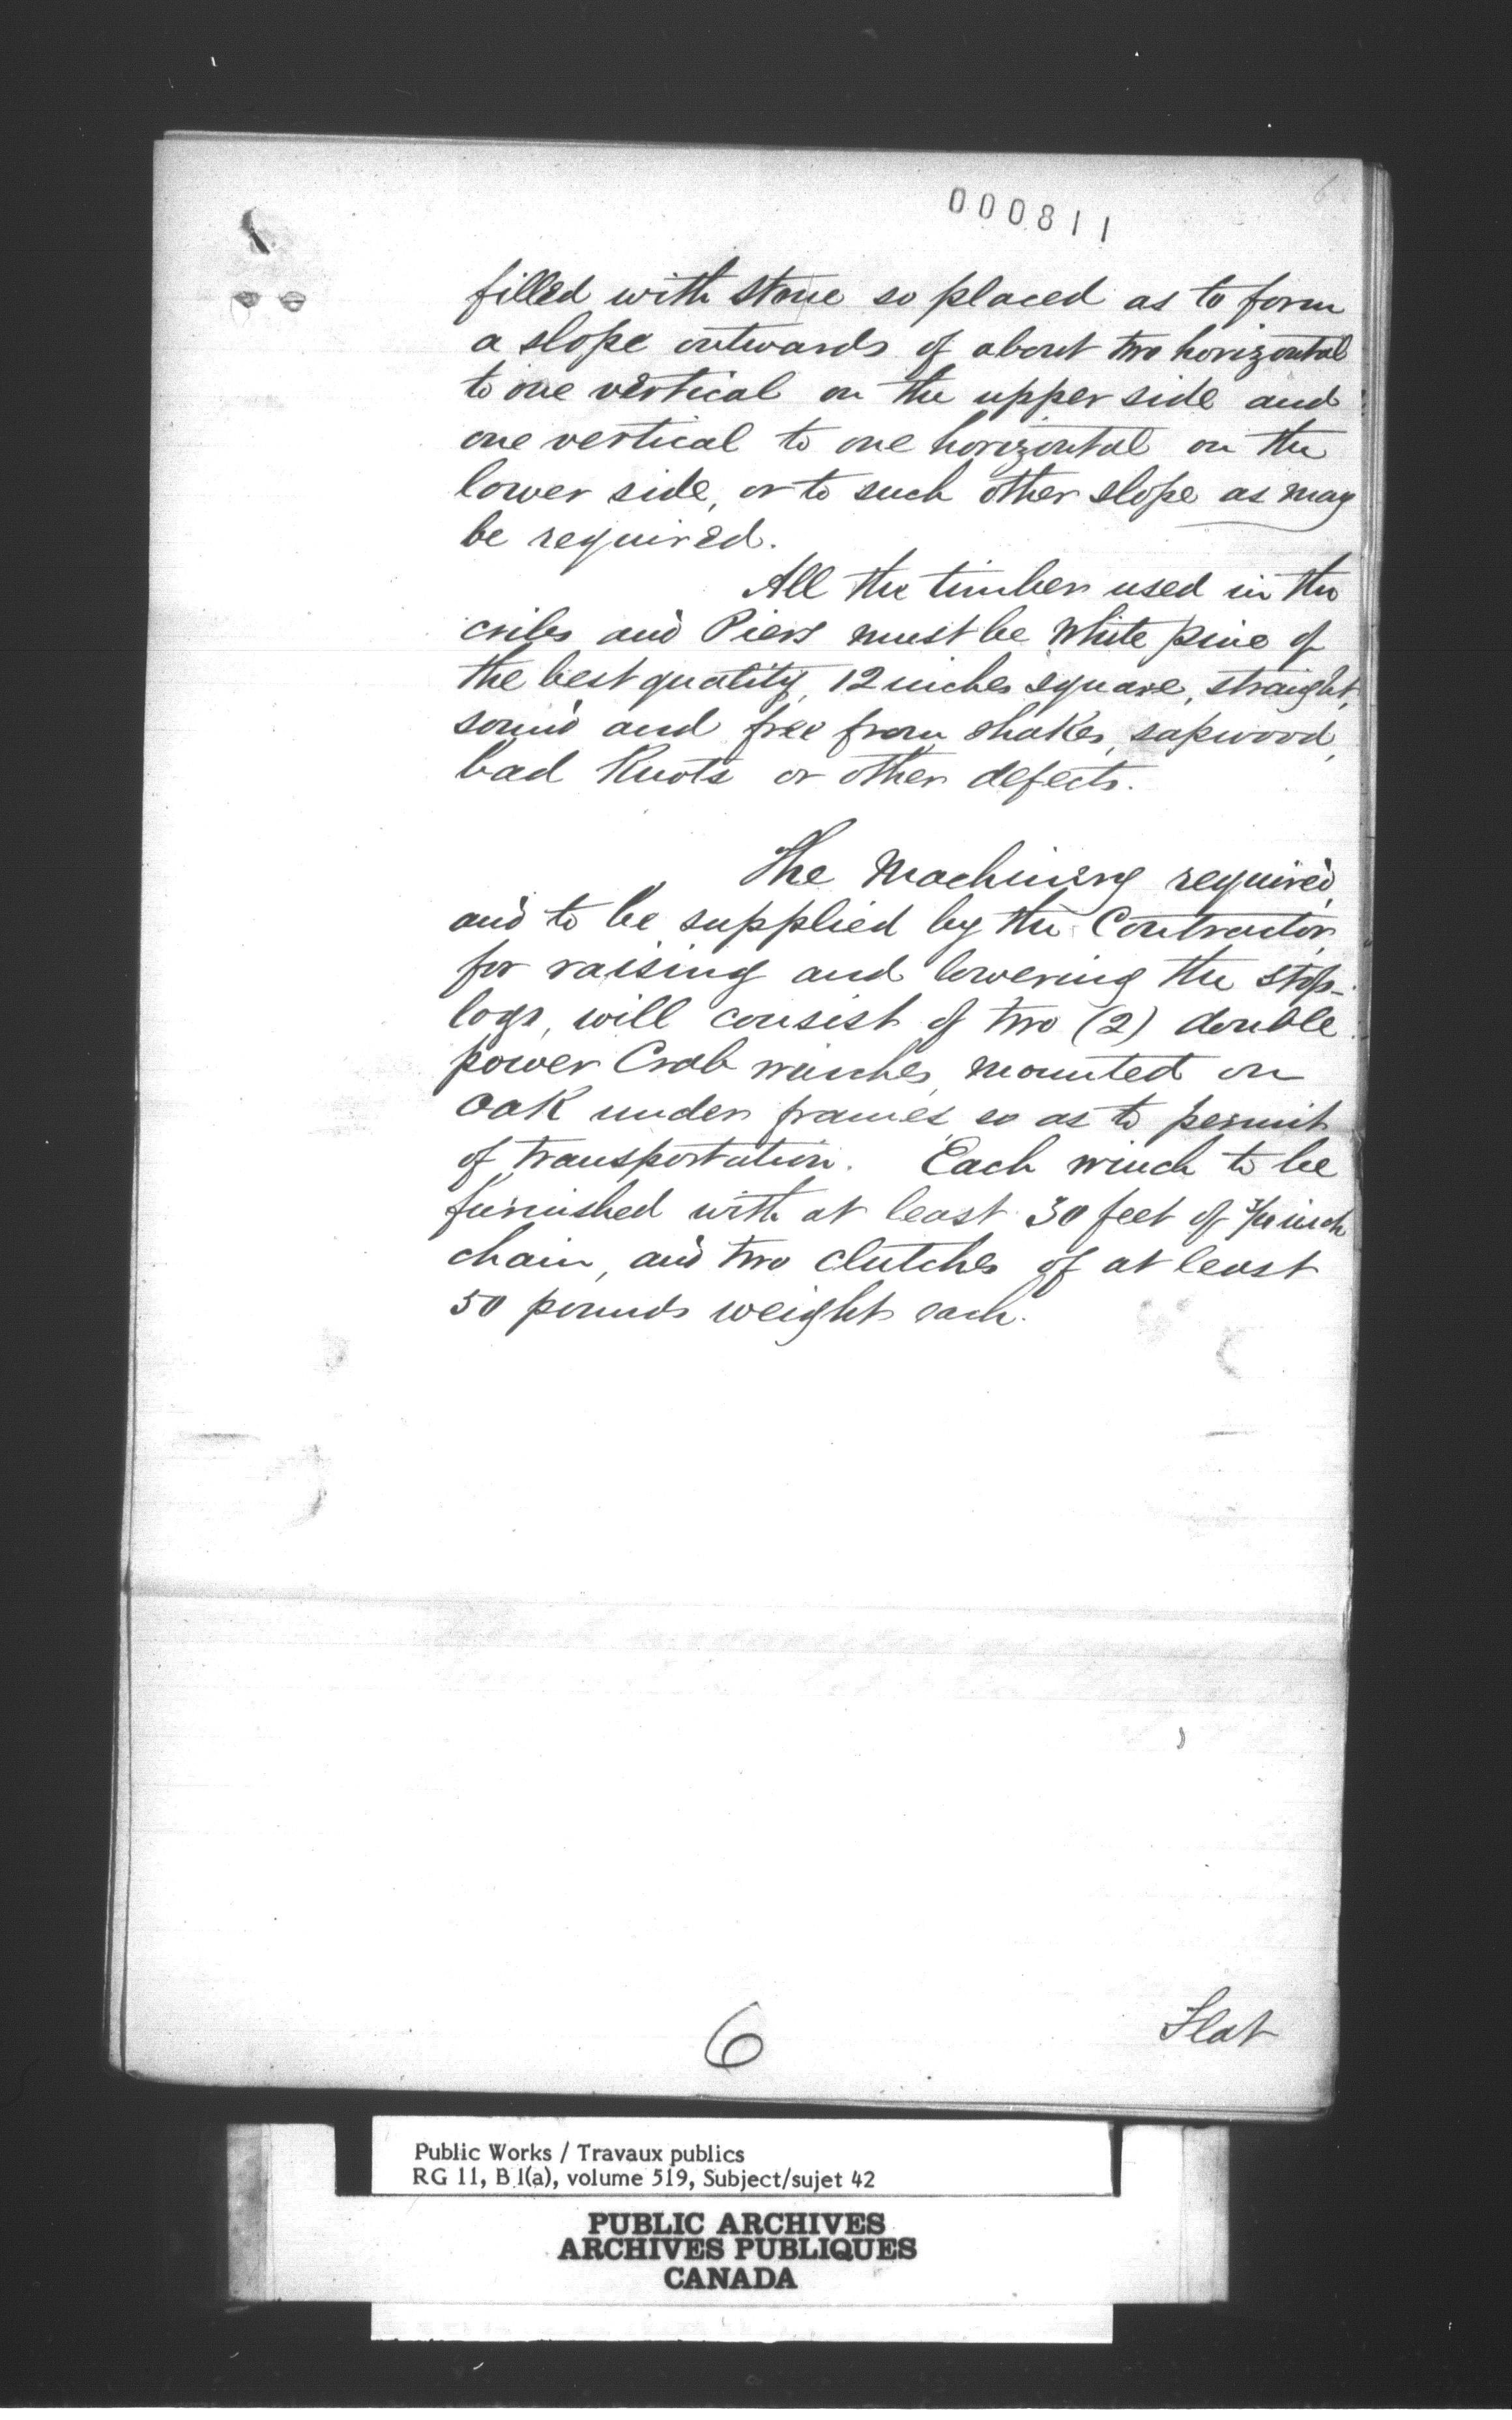 000811
6
filled with stone so placed as to form
a slope outwards of about two horizontal
to one vertical on the upper side and
one vertical to one horizontal on the
lower side, or to such other slope as may
be required.
All the timber used in the
cribs and Piers must be White pine of
the best quality, 12 inches square, straight,
sound and free from shakes, sapwood,
bad Knots or other defects.
The Machinery required,
and to be supplied by the Contractor,
for raising and lowering the stop-
logs, will consist of two (2) double
power Crab winches, mounted on
Oak under frames, so as to permit
of transportation. Each winch to be
furnished with at least 30 feet of 3/4 inch
chain, and two clutches of at least
50 pounds weight each.
6
Flat
Public Works / Travaux publics
RG 11, B 1(a), volume 519, Subject/sujet 42
PUBLIC ARCHIVES
ARCHIVES PUBLIQUES
CANADA